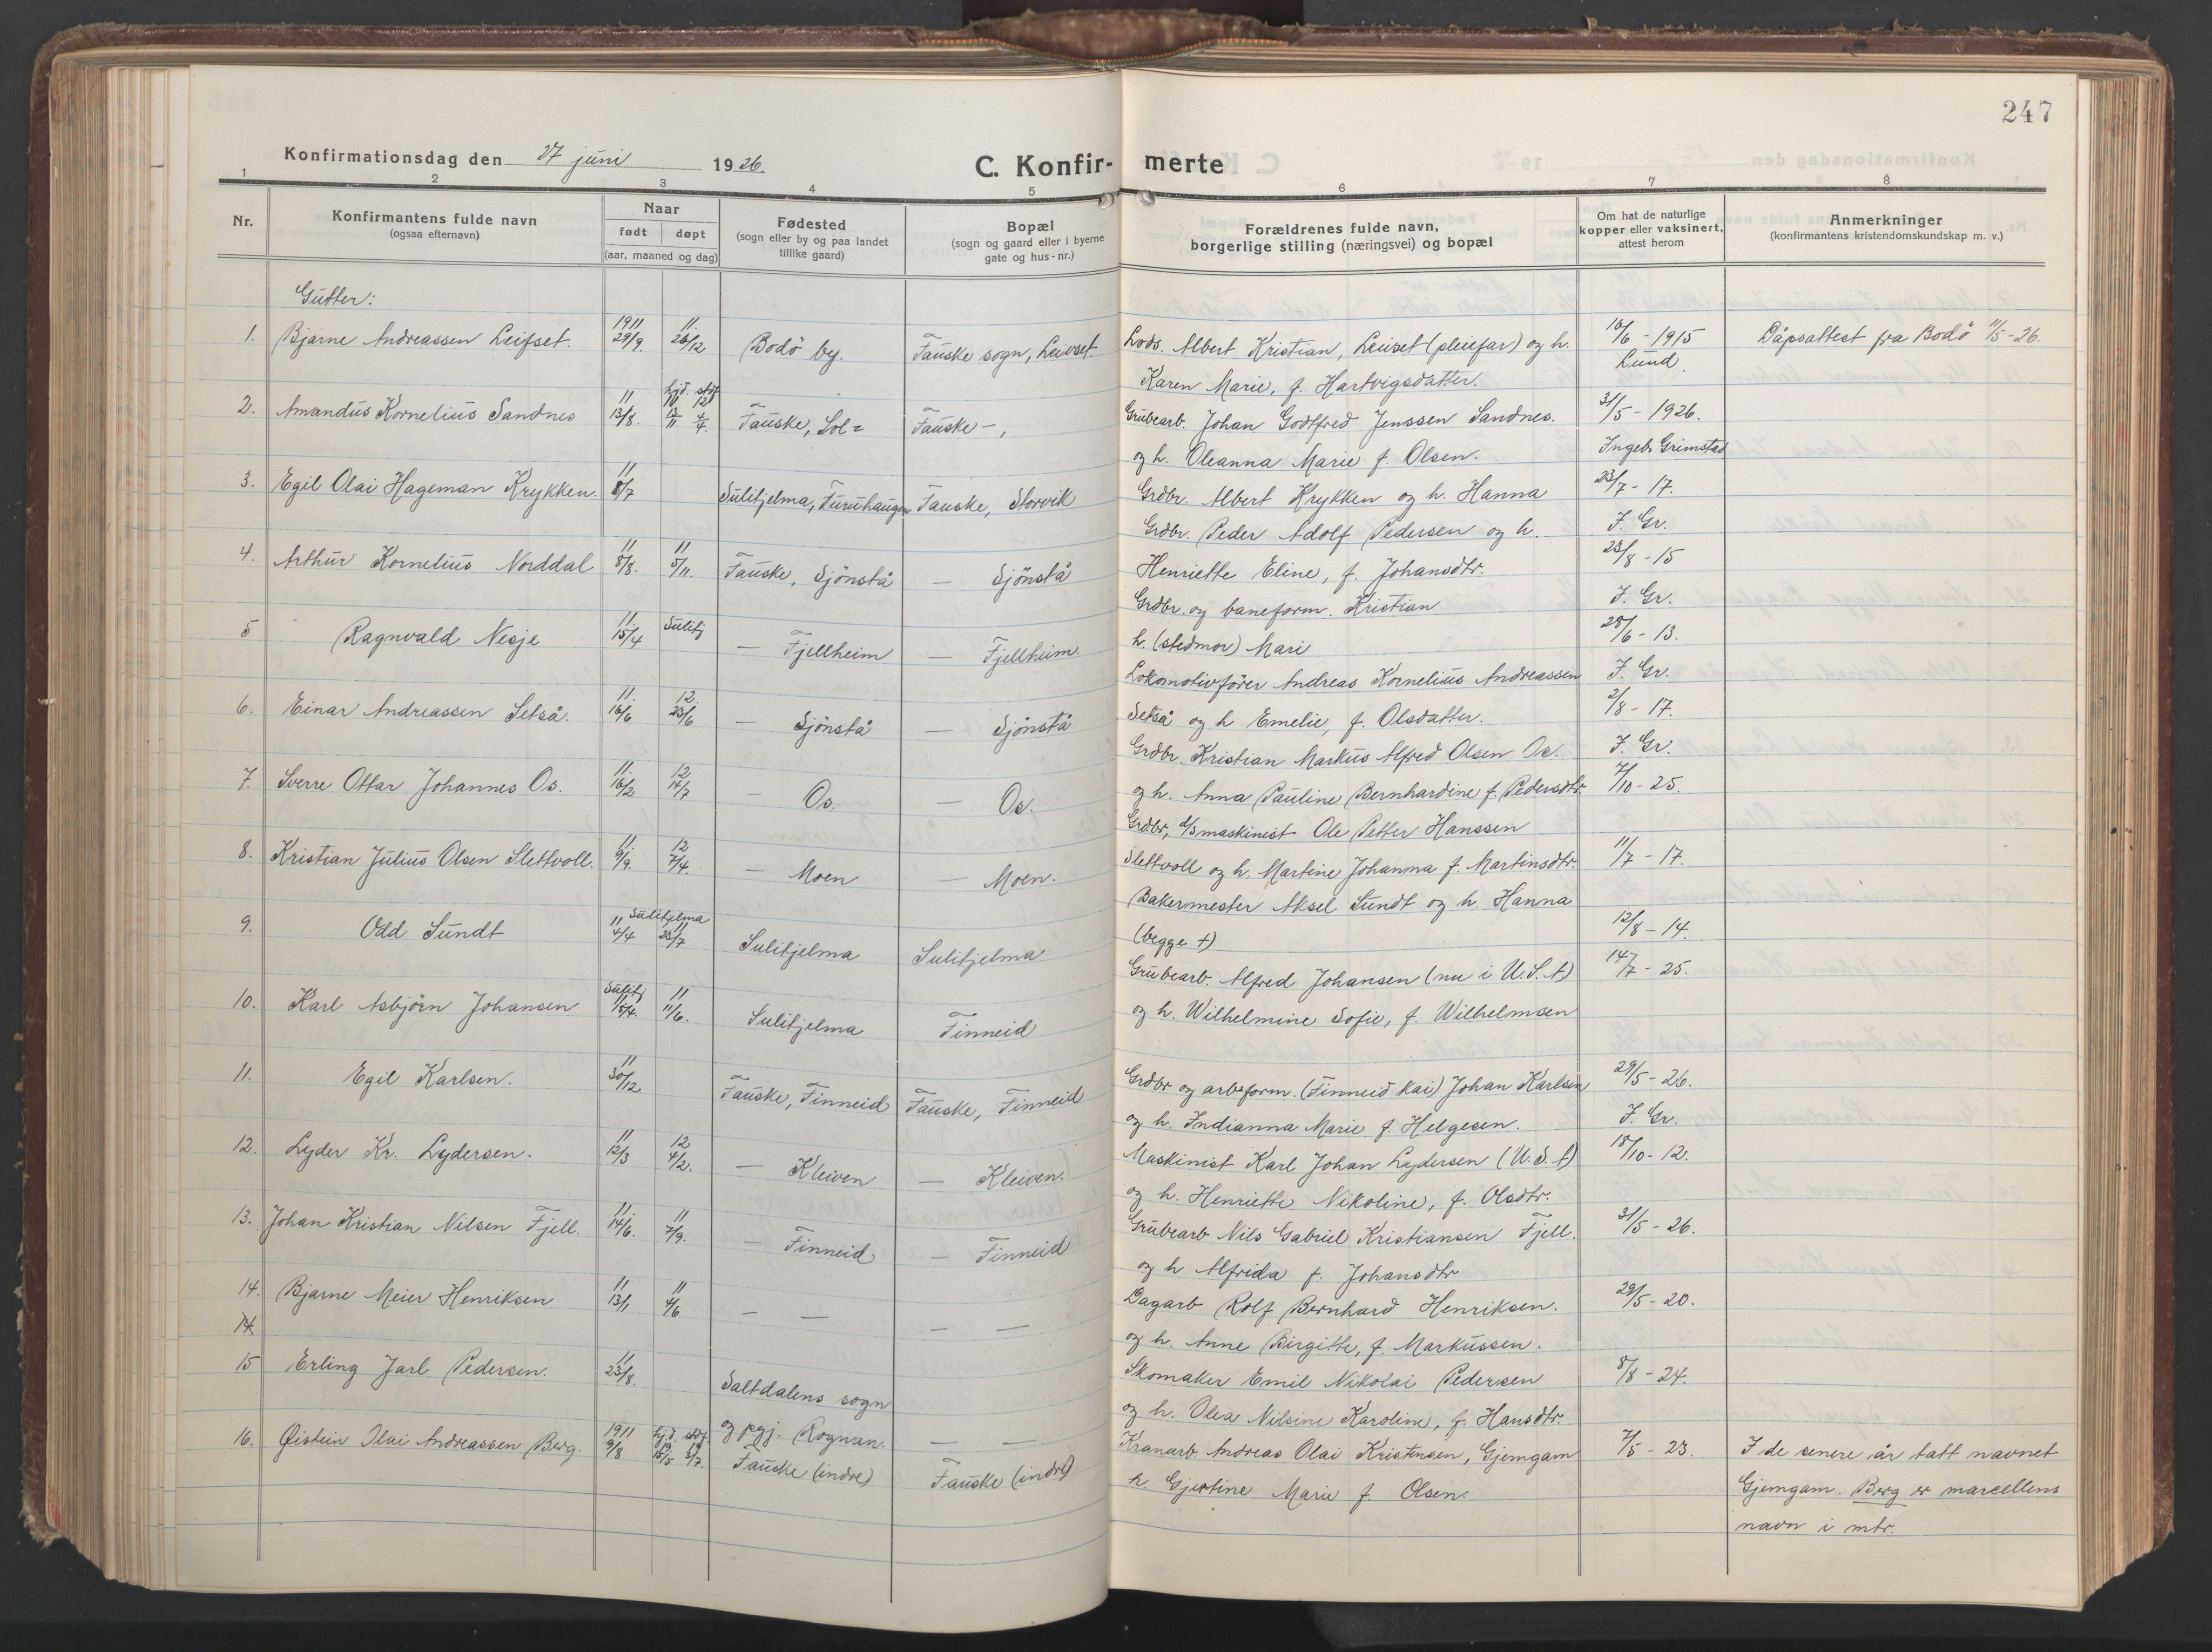 247
Konfirmationsdag den 27 juni 1926.
C. Konfirmerte
1 2 3 4 5 6 7 8
Nr.
Konfirmantens fulde navn
(ogsaa efternavn)
Naar
født døpt
(aar, maaned og dag)
Fødested
(sogn eller by og paa landet
tillike gaard)
Bopæl
(sogn og gaard eller i byerne
gate og hus-nr.)
Forældrenes fulde navn,
borgerlige stilling (næringsvei) og bopæl
Om hat de naturlige
kopper eller vaksinert,
attest herom
Anmerkninger
(konfirmantens kristendomskundskap m. v.)
Gutter:
1. Bjarne Andreassen Leifset. 1911 29/9. 11. 26/12 Bodö by. Fauske sogn, Leivset. Lods. Albert Kristian, Leivset (pleiefar) og h. 10/6 - 1915 Dåpsattest fra Bodö 11/5-26.
Karen Marie, f. Hartvigsdatter. Lund.
2. Amandus Kornelius Sandnes 11 13/8. hjd. 11 13/11 stdf. 12 4/4. Fauske, Sol= Fauske -, Grubearb. Johan Godtfred Jenssen Sandnes. 31/5 - 1926.
og h. Oleanna Marie f. Olsen. Ingebr Grimstad
3. Egil Olai Hageman Krykken. 11 8/7 Sulitjelma, Furuhaugen Fauske, Storvik Grdbr. Albert Krykken og h. Hanna 23/7 - 17.
J. Gr.
4. Arthur Kornelius Norddal 11 8/8. 11 5/11. Fauske, Sjönstå — Sjönstå Grdbr. Peder Adolf Pedersen og h. 23/8 - 15
Henriette Eline, f. Johansdtr. J. Gr.
5 Ragnvald Nesje 11. 15/4 Sulitj — Fjellheim — Fjellheim. Grdbr. og baneform. Kristian 28/6 - 13.
h. (stedmor) Mari J. Gr.
6. Einar Andreassen Setså. 11. 16/6 12. 23/6 — Sjönstå — Sjönstå Lokomotivförer Andreas Kornelius Andreassen 2/8 - 17.
Setså og h Emelie, f. Olsdatter. J. Gr.
7. Sverre Ottar Johannes Os. 11. 16/2 12 14/7 — Os. — Os. Grdbr. Kristian Markus Alfred Olsen Os. 7/10 - 25.
og h. Anna Pauline Bernhardine f. Pedersdtr.
8. Kristian Julius Olsen Slettvoll. 11. 9/9. 12 7/4. — Moen — Moen. Grdbr, d/s maskinist Ole Petter Hanssen 11/7 - 17.
Slettvoll og h. Martine Johanna f. Martinsdtr.
9. Odd Sundt 11 4/4 Sulitjelma 11 23/7 Sulitjelma Sulitjelma Bakermester Aksel Sundt og h. Hanna 12/8 - 14.
(begge †)
10. Karl Asbjörn Johansen Sulitj 11 15/4. 11 11/6. Sulitjelma Finneid Grubearb. Alfred Johansen (nu i U.S.A) 14/7 - 25.
og h. Wilhelmine Sofie, f. Wilhelmsen
11. Egil Karlsen. 11 30/12 Fauske, Finneid Fauske, Finneid Grdbr og arb.form. (Finneid kai) Johan Karlsen 29/5 - 26.
og h. Indianna Marie f. Helgesen. J. Gr.
12. Lyder Kr. Lydersen. 11 12/3 12 4/2. — Kleiven — Kleiven. Maskinist Karl Johan Lydersen (U.S.A) 18/10 - 12.
og h. Henriette Nikoline, f. Olsdtr.
13. Johan Kristian Nilsen Fjell. 11. 14/6. 11 7/9. — Finneid — Finneid Grubearb Nils Gabriel Kristiansen Fjell. 31/5 - 26.
og h Alfrida f. Johansdtr
14. Bjarne Meier Henriksen 11 13/1 11 4/6 — — — — Dagarb Rolf Bernhard Henriksen. 29/5 - 20.
14 og h. Anne Birgitte, f. Markussen.
15 Erling Jarl Pedersen. 11 23/8. Saltdalens sogn og pgj. Rognan. — — Skomaker Emil Nikolai Pedersen 8/8 - 24.
og h. Olea Nilsine Karoline, f. Hansdtr.
16. Øistein Olai Andreassen Berg. 1911 9/8 hj.d. 15/5 stdf. 3/7. Fauske (indre) Fauske (indre) Kranarb. Andreas Olai Kristensen, Gjemgam 7/5 - 23. I de senere år tatt navnet
h. Gjertine Marie f. Olsen. Gjemgam. Berg er marcellens
navn i mtr.